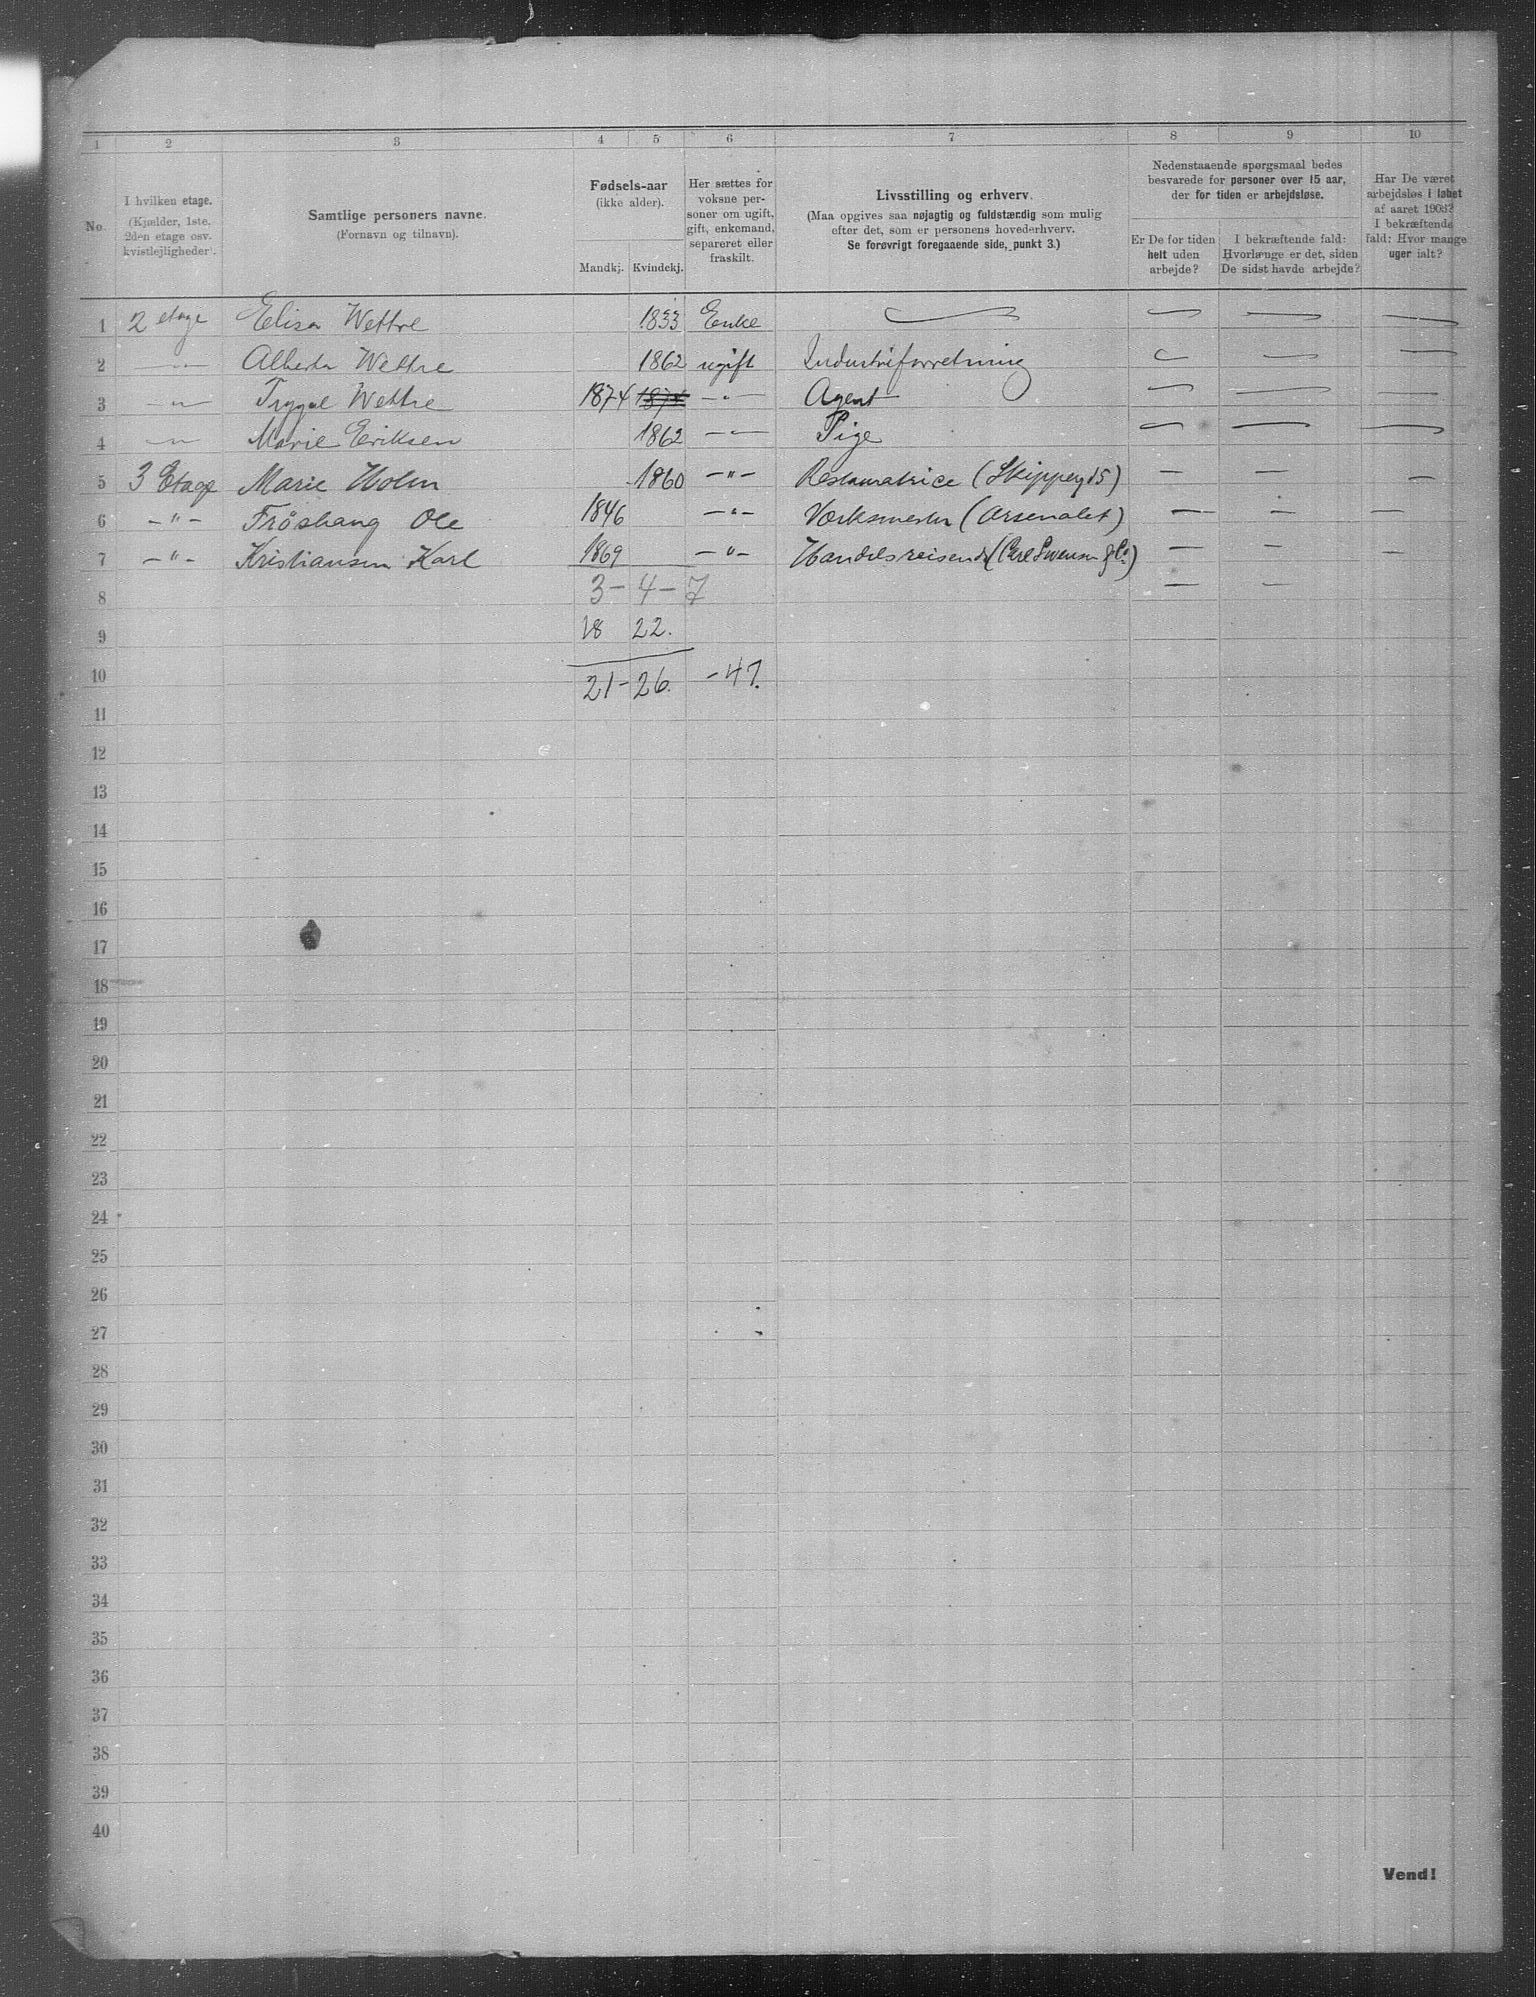 1 2 3 4 5 6 7 8 9 10
No.
I hvilken etage.
(Kjælder, 1ste.
2den etage osv.
kvistlejligheder).
Samtlige personers navne.
(Fornavn og tilnavn).
Fødsels-aar
(ikke alder).
Mandkj. Kvindekj.
Her sættes for
voksne per-
soner om ugift,
gift, enkemand,
separeret eller
fraskilt.
Livsstilling og erhverv.
(Maa opgives saa nøjagtig og fuldstærdig som mulig
efter det, som er personens hovederhverv.
Se forøvrigt foregaaende side, punkt 3.)
Nedenstaaende spørgsmaal bedes
besvarede for personer over 15 aar,
der for tiden er arbejdsløse.
Er De for tiden
helt uden
arbejde?
I bekræftende fald:
Hvorlænge er det, siden
De sidst havde arbejde?
Har De været
arbejdsløs i løbet
af aaret 1903?
I bekræftende
fald: Hvor mange
uger ialt?
1 2 etage Elisa Wettre 1833 Enke — — — —
2 —"— Alberta Wettre 1862 ugift Industriforretning — — —
3 —"— Trygve Wettre 1874 1874 —"— Agent — — —
4 —"— Marie Eriksen 1862 —"— Pige — — —
5 3 Etage Marie Holm 1860 —"— Restauratrice (Skipperg 15) — — —
6 —"— Frøshaug Ole 1846 —"— Værksmester (Arsenalet) — — —
7 —"— Kristiansen Karl 1869 —"— Handelsreisende (Carl Svensen & Co.) — — —
8 3 - 4 - 7 — —
9 18 22.
10 21 - 26. - 47.
11
12
13
14
15
16
17
18
19
20
21
22
23
24
25
26
27
28
29
30
31
32
33
34
35
36
37
38
39
40
Vend!